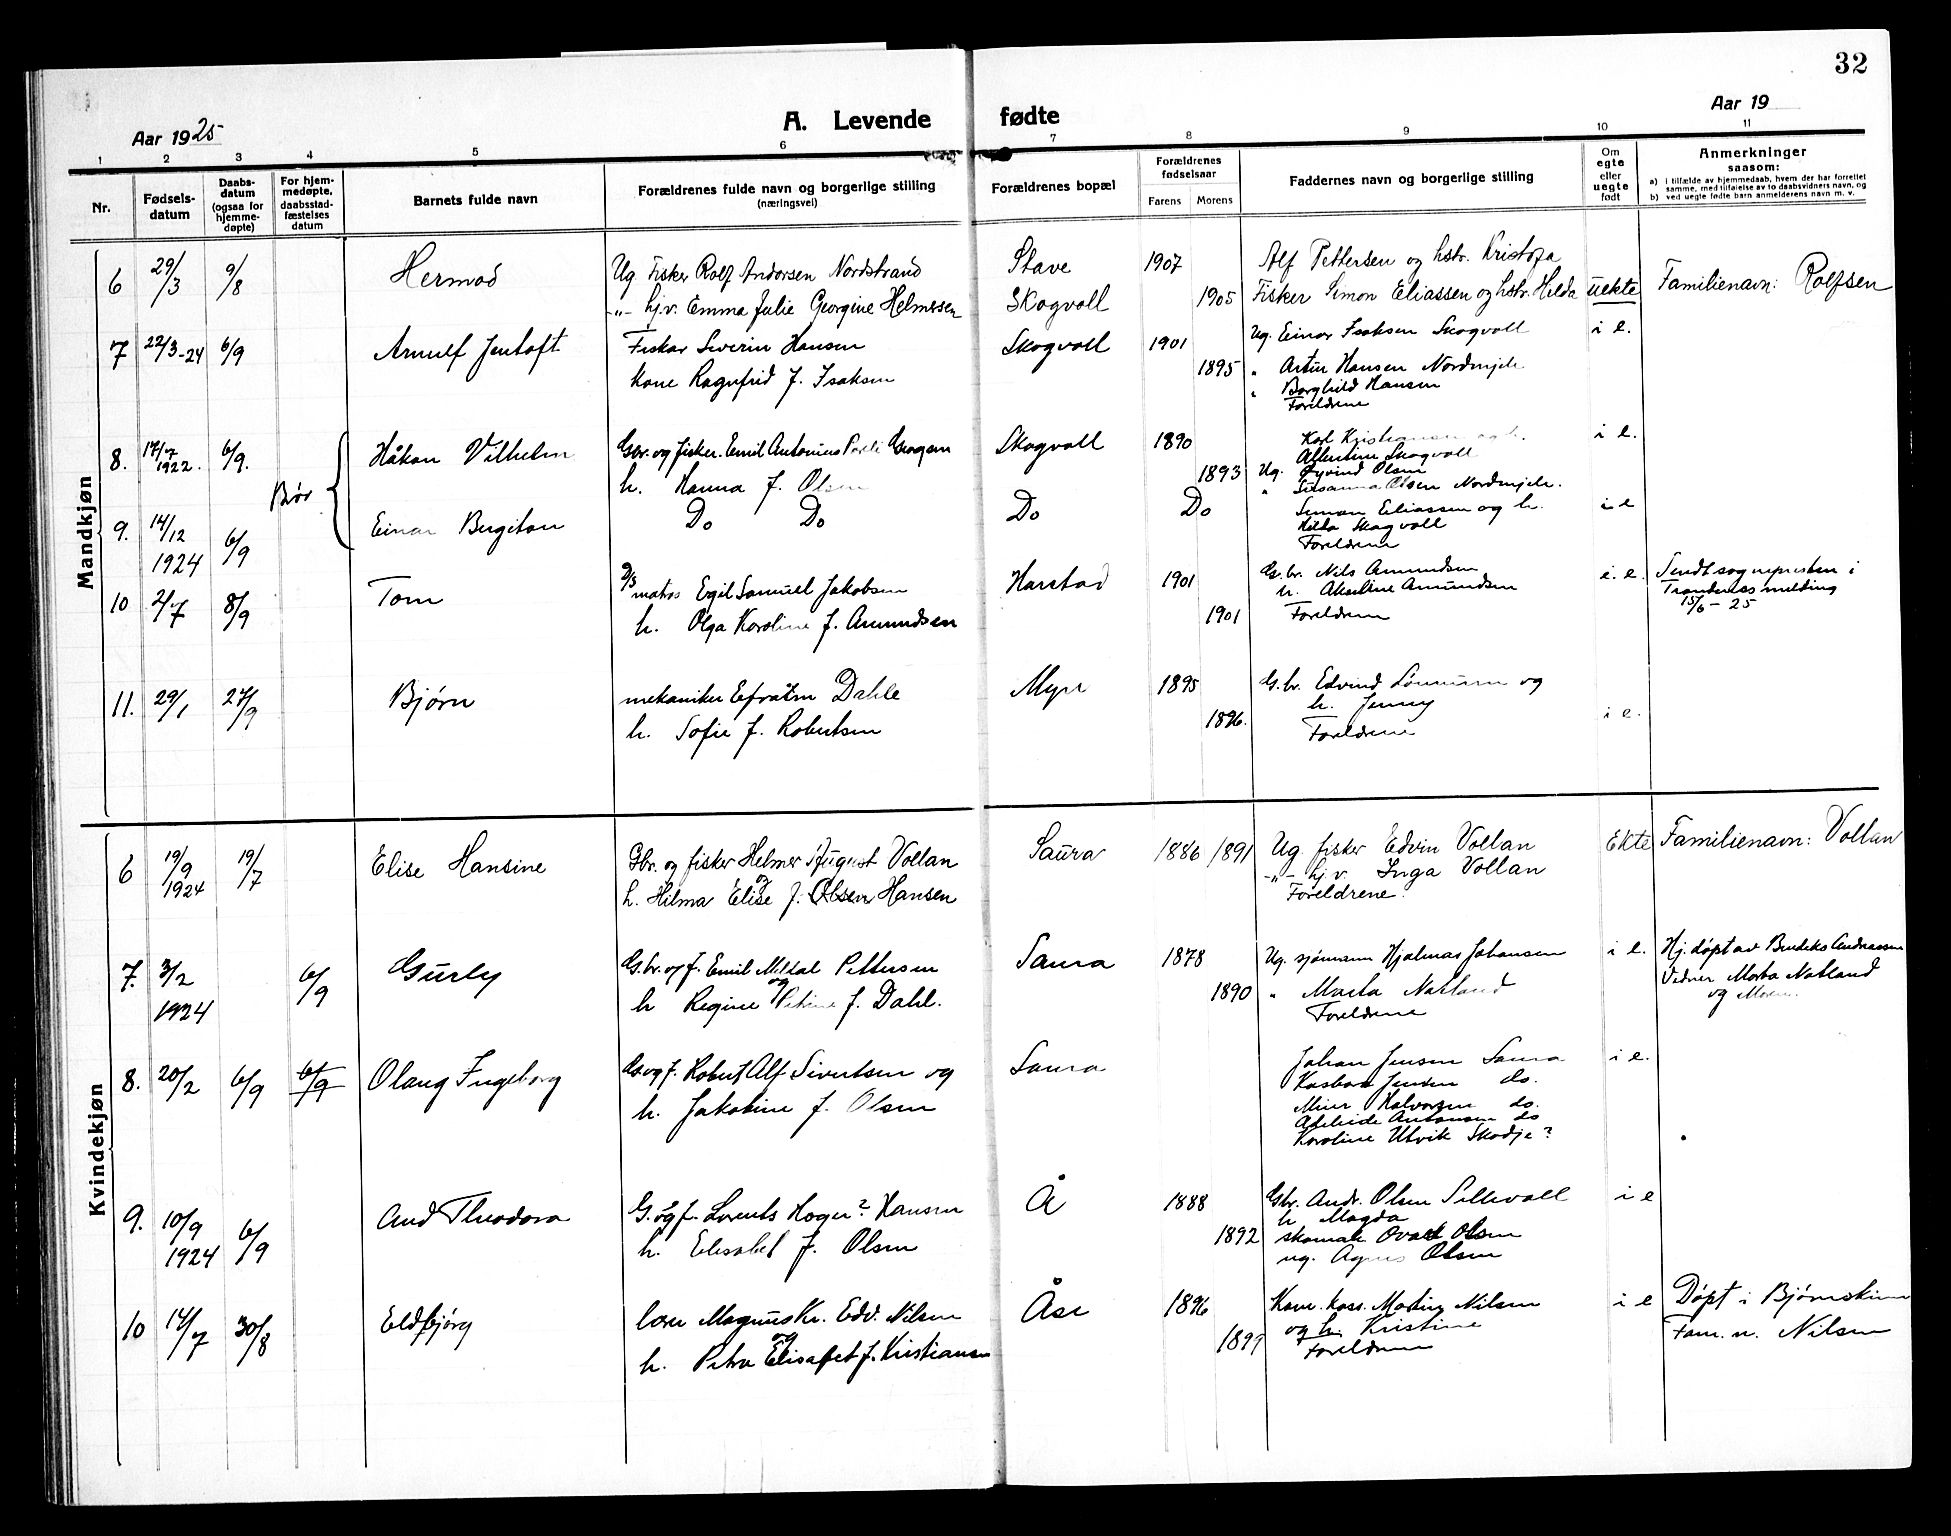 32
Aar 1925
A. Levende fødte
Aar 19
1 2 3 4 5 6 7 8 9 10 11
Nr.
Fødsels-
datum
Daabs-
datum
(ogsaa for
hjemme-
døpte)
For hjem-
medøpte,
daabsstad-
fæstelses
datum
Barnets fulde navn
Forældrenes fulde navn og borgerlige stilling
(næringsvei)
Forældrenes bopæl
Forældrenes
fødselsaar
Farens Morens
Faddernes navn og borgerlige stilling
Om
egte
eller
uegte
født
Anmerkninger
saasom:
a) i tilfælde av hjemmedaab, hvem der har forrettet
samme, med tilføielse av to daabsvidners navn, og
b) ved uegte fødte barn anmelderens navn m. v.
Mandkjøn
6 29/3 9/8 Hermod
Ug Fisker Rolf Andorsen Nordstrand
-"- hj.v. Emma Julie Georgine Helmersen
Stave 1907
Skogvoll 1905
Alf Pettersen og hstr. Kristofa
Fisker Simon Eliassen og hstr. Hilda
uekte
Familienavn: Rolfsen
7 22/3-24 6/9 Arnulf Jentoft
Fisker Severin Hansen
kone Ragnfrid f. Isaksen
Skogvoll 1901
1895
Ug. Einar Isaksen Skogvoll
" Artur Hansen Nordmjele
" Borghild Hansen
Foreldrene
i e.
8. 17/7 1922. 6/9. Håkon Vilhelm
Gbr. og fisker. Emil Antonius
h. Hanna f. Olsen
Skogvoll 1890
1893
Karl Kristiansen
Albertine Skogvoll
Ug. Øyvind Olsen
" Susanna Olsen Nordmjele.
i e.
Brør
9. 14/12 1924 6/9 Einar Bergiton
Do Do
Do
Do
Simon Eliassen og h.
Hilda Skogvoll
Foreldrene
i e
10 2/7 8/9 Tom
matros Egil Samuel Jakobsen
h. Olga Karoline f. Amundsen
Harstad 1901
1901
G.br. Nils Amundsen
h. Akseline Amundsen
Foreldrene
i. e.
Sendt sognepresten i
Tranknes melding
15/6-25
11. 29/1 27/9 Bjørn
mekaniker Efraim Dahle
h. Sofie f. Robertsen
Myre 1895
1896.
G.br. Edvind Lønnum og
h. Jenny
Foreldrene
i e.
Kvindekjøn
6 19/9 1924 19/7 Elise Hansine
Gbr. og fisker Helmer August Vollan
og
h. Hilma Elise f. Olsen Hansen
Saura 1886 1891
Ug. fisker Edvin Vollan
-"- hj.v. Inga Vollan
Foreldrene.
Ekte
Familienavn: Vollan
7. 3/2 1924 6/9 Gurly
G.br. og f. Emil Meldal Pettersen
og
h Regine Petrine f. Dahl.
Saura 1878
1890
Ug. sjømann Hjalmar Johansen
" Marta Natland
Foreldrene
i e.
Hj. døpt av Andreassen
Vidner Marta Natland
og
8. 20/2 6/9 6/9 Olaug Ingeborg
G. og f. Robert Alf Sivertsen og
h. Jakobine f. Olsen
Saura
Johan Jensen Saura
Jensen do.
Halvorsen do.
Antonsen do
Karoline Utvik Skodje?
i e.
9. 10/9 1924 6/9 Aud Theodora
G. og f. Lorents Hoger? Hansen
h. Elisabet f. Olsen
Å 1888
1892
Gbr. Andr. Olsen Sellevoll
h Magda
skomak. Olsen
ug. Agnes Olsen
i e
10 14/7 30/8 Eldbjørg
lærer Magnus Kr. Edv. Nilsen
og
h. Petra Elisabet f. Kristiansen
Åse 1896
1897
Martin Nilsen
og h. Kristine
Foreldrene
i e
Døpt i Bjørnskinn
Fam. n. Nilsen